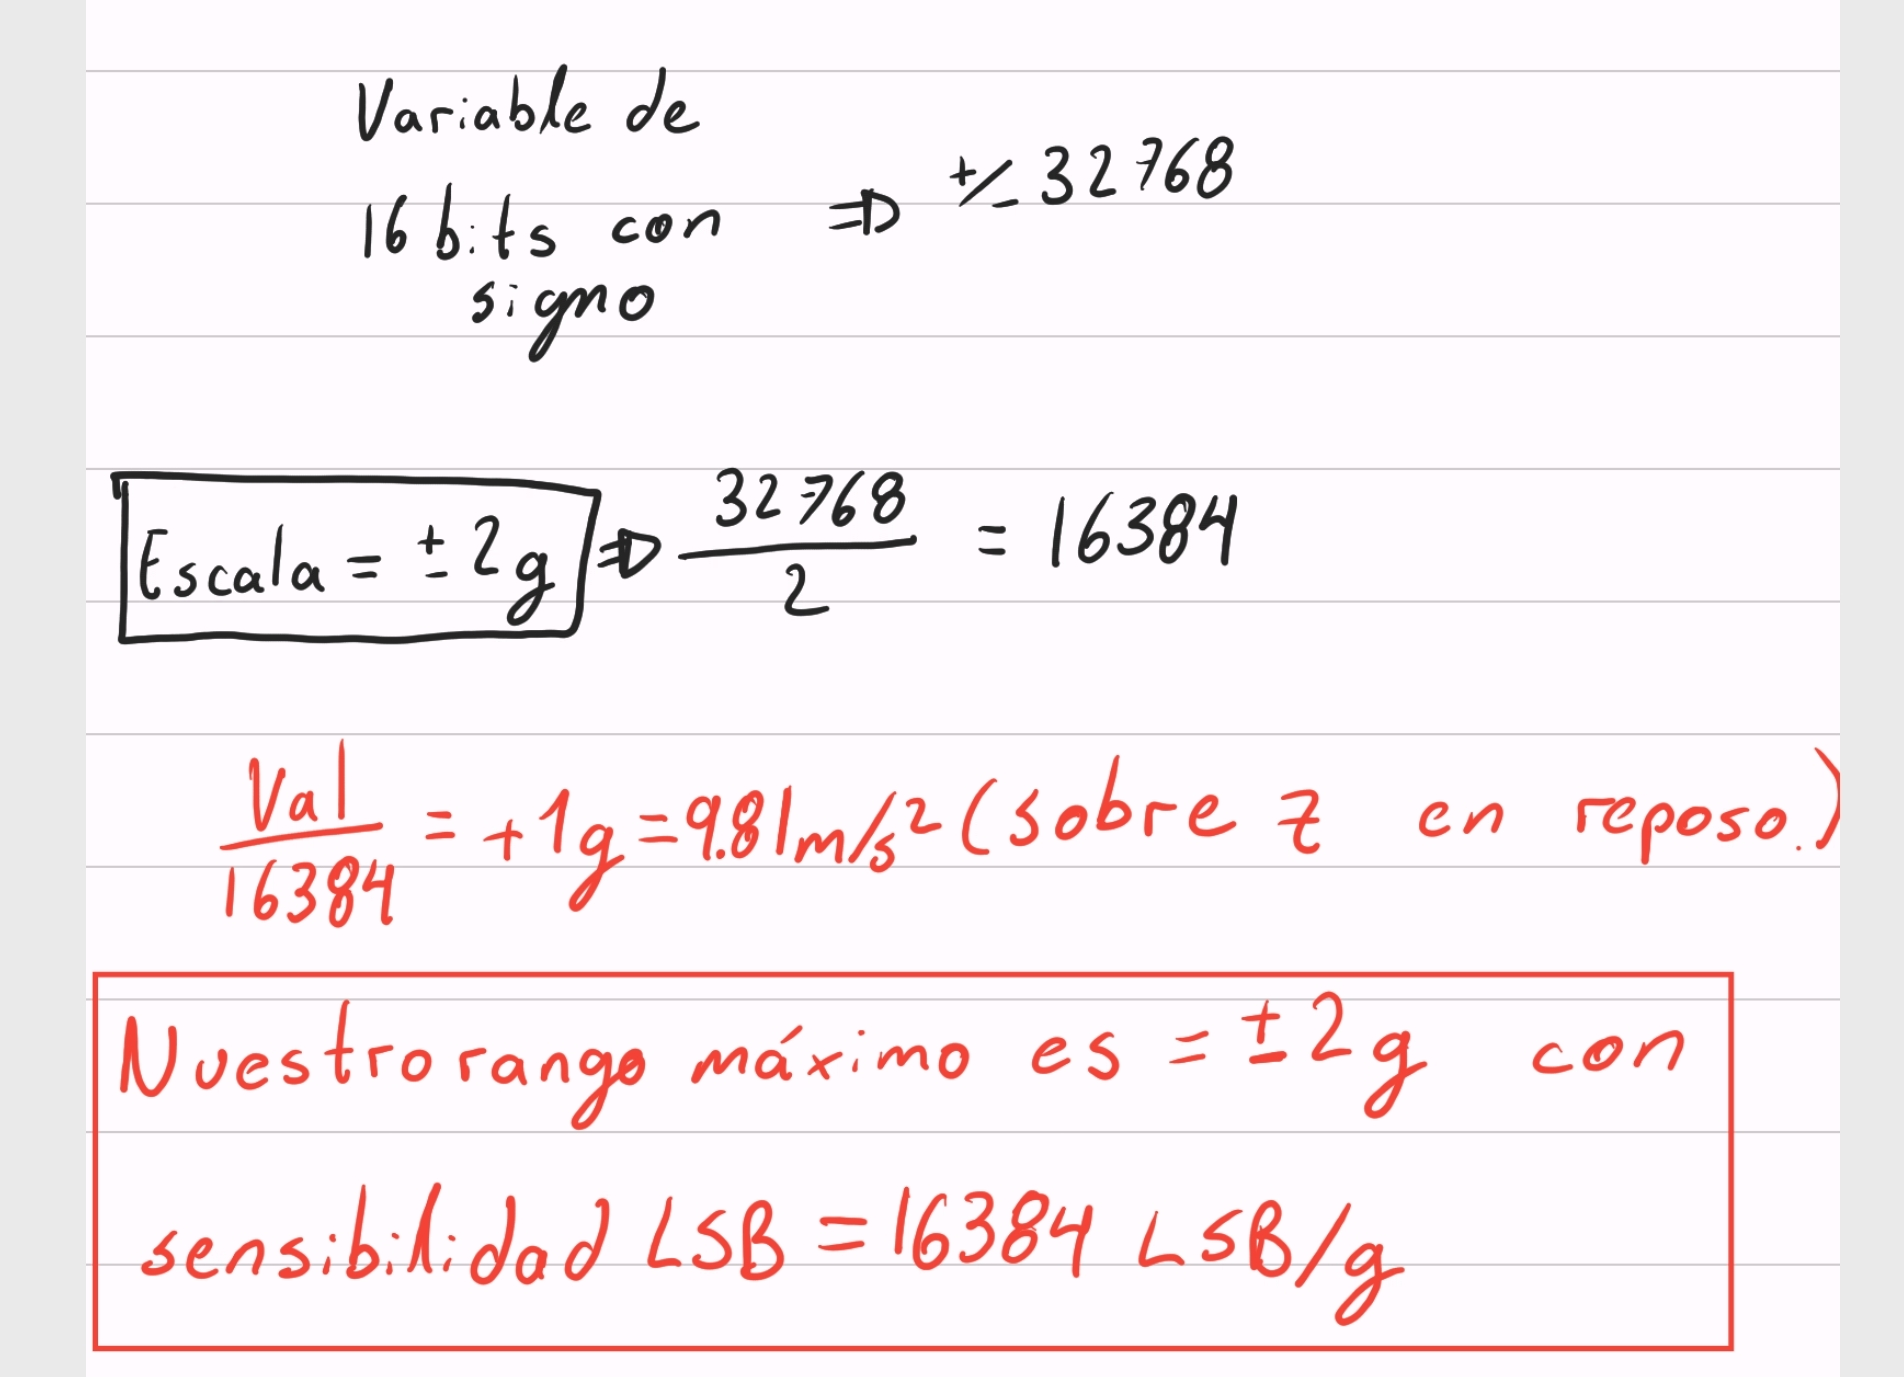 Variable de
16 bits con ⇒ +/- 32768
signo
Escala = ± 2g ⇒ 32768/2 = 16384
Val/16384 = +1g = 9.81m/s² (sobre z en reposo.)
Nuestro rango máximo es = ± 2g con
sensibilidad LSB = 16384 LSB/g